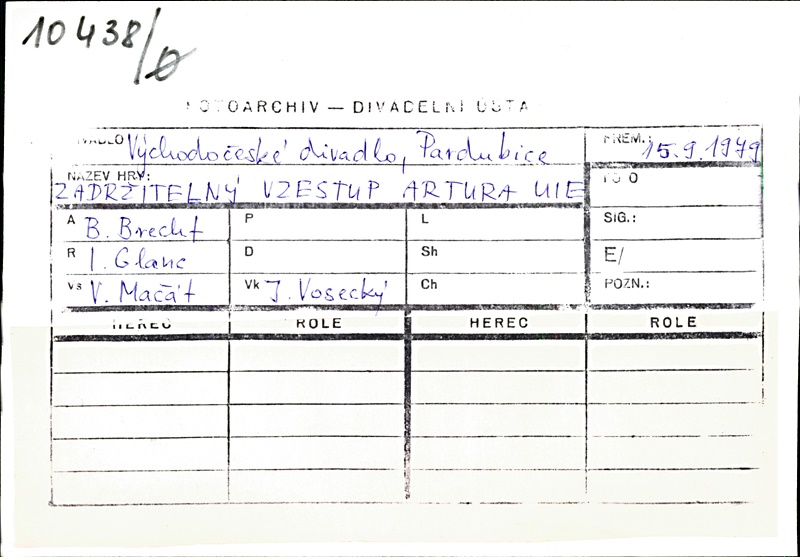 10438/0
FOTOARCHIV — DIVADELNÍ ÚSTA
IVADLO Východočeské divadlo, Pardubice PREM.: 15.9.1979
NÁZEV HRY:
ZADRŽITELNÝ VZESTUP ARTURA UIE
A B. Brecht P L SIG.:
R I. Glanc D Sh E/
Vs V. Mačát Vk J. Vosecký Ch POZN.:
HEREC ROLE HEREC ROLE